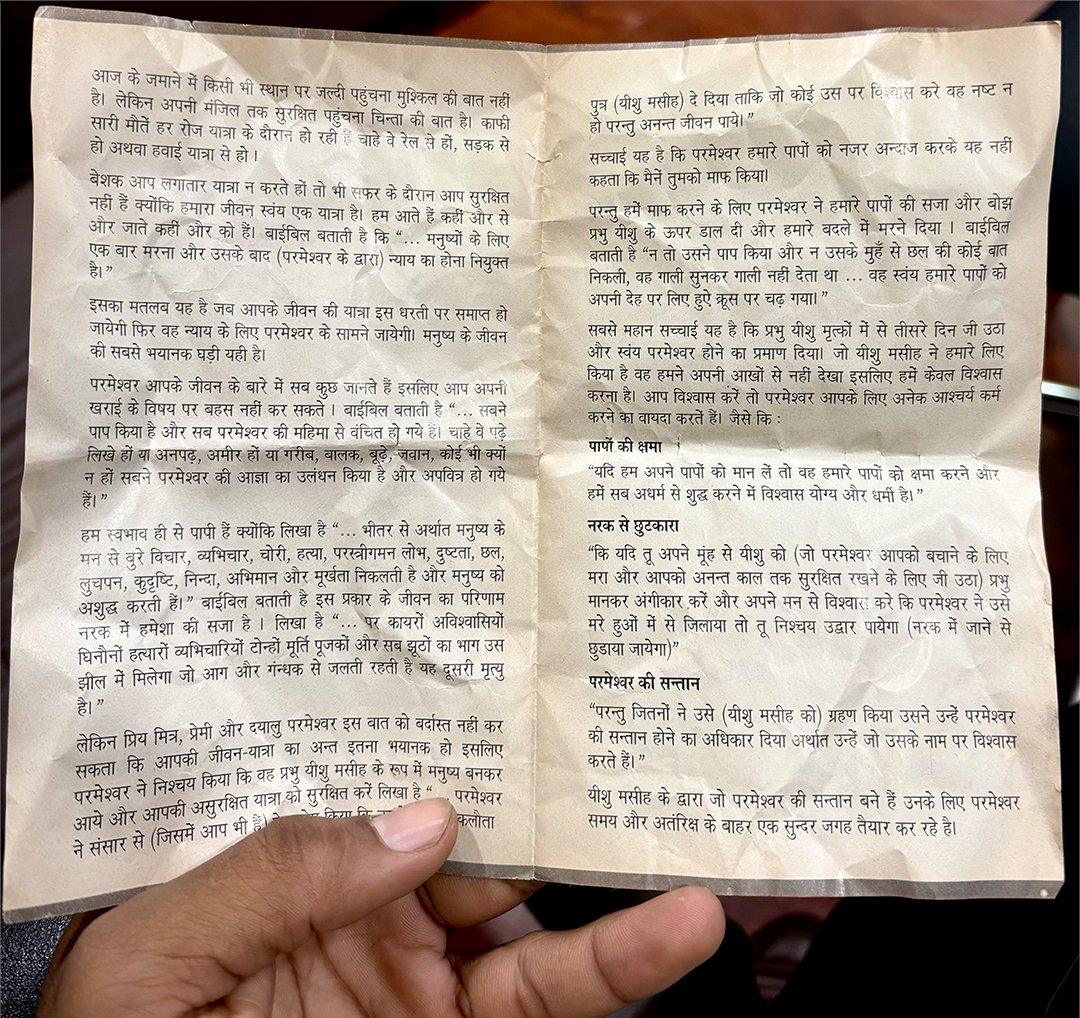 आज के जमाने में किसी भी स्थान पर जल्दी पहुंचना मुश्किल की बात नहीं
है। लेकिन अपनी मंजिल तक सुरक्षित पहुंचना चिन्ता की बात है। काफी
सारी मौतें हर रोज यात्रा के दौरान हो रही हैं चाहे वे रेल से हों, सड़क से
हो अथवा हवाई यात्रा से हो ।
बेशक आप लगातार यात्रा न करते हों तो भी सफर के दौरान आप सुरक्षित
नहीं हैं क्योंकि हमारा जीवन स्वंय एक यात्रा है। हम आते हैं कहीं और से
और जाते कहीं और को हैं। बाईबिल बताती है कि “... मनुष्यों के लिए
एक बार मरना और उसके बाद (परमेश्वर के द्वारा) न्याय का होना नियुक्त
है।”
इसका मतलब यह है जब आपके जीवन की यात्रा इस धरती पर समाप्त हो
जायेगी फिर वह न्याय के लिए परमेश्वर के सामने जायेगी। मनुष्य के जीवन
की सबसे भयानक घड़ी यही है।
परमेश्वर आपके जीवन के बारे में सब कुछ जानते हैं इसलिए आप अपनी
खराई के विषय पर बहस नहीं कर सकते । बाईबिल बताती है “... सबने
पाप किया है और सब परमेश्वर की महिमा से वंचित हो गये हैं। चाहे वे पढ़े
लिखे हों या अनपढ़, अमीर हों या गरीब, बालक, बूढ़े, जवान, कोई भी क्यों
न हों सबने परमेश्वर की आज्ञा का उलंघन किया है और अपवित्र हो गये
हैं।”
हम स्वभाव ही से पापी हैं क्योंकि लिखा है “... भीतर से अर्थात मनुष्य के
मन से बुरे विचार, व्यभिचार, चोरी, हत्या, परस्त्रीगमन लोभ, दुष्टता, छल,
लुचपन, कुदृष्टि, निन्दा, अभिमान और मूर्खता निकलती है और मनुष्य को
अशुद्ध करती हैं।” बाईबिल बताती है इस प्रकार के जीवन का परिणाम
नरक में हमेशा की सजा है । लिखा है “... पर कायरों अविश्वासियों
घिनौनों हत्यारों व्यभिचारियों टोन्हों मूर्ति पूजकों और सब झूठों का भाग उस
झील में मिलेगा जो आग और गंन्धक से जलती रहती है यह दूसरी मृत्यु
है।”
लेकिन प्रिय मित्र, प्रेमी और दयालु परमेश्वर इस बात को बर्दास्त नहीं कर
सकता कि आपकी जीवन-यात्रा का अन्त इतना भयानक हो इसलिए
परमेश्वर ने निश्चय किया कि वह प्रभु यीशु मसीह के रूप में मनुष्य बनकर
आये और आपकी असुरक्षित यात्रा को सुरक्षित करें लिखा है “ परमेश्वर
ने संसार से (जिसमें आप भी हैं) किया कि
पुत्र (यीशु मसीह) दे दिया ताकि जो कोई उस पर विश्वास करे वह नष्ट न
हो परन्तु अनन्त जीवन पाये।”
सच्चाई यह है कि परमेश्वर हमारे पापों को नजर अन्दाज करके यह नहीं
कहता कि मैनें तुमको माफ किया।
परन्तु हमें माफ करने के लिए परमेश्वर ने हमारे पापों की सजा और बोझ
प्रभु यीशु के ऊपर डाल दी और हमारे बदले में मरने दिया । बाईबिल
बताती है “न तो उसने पाप किया और न उसके मुहँ से छल की कोई बात
निकली, वह गाली सुनकर गाली नहीं देता था ... वह स्वंय हमारे पापों को
अपनी देह पर लिए हुऐ क्रूस पर चढ़ गया।”
सबसे महान सच्चाई यह है कि प्रभु यीशु मृत्कों में से तीसरे दिन जी उठा
और स्वंय परमेश्वर होने का प्रमाण दिया। जो यीशु मसीह ने हमारे लिए
किया है वह हमने अपनी आखों से नहीं देखा इसलिए हमें केवल विश्वास
करना है। आप विश्वास करें तो परमेश्वर आपके लिए अनेक आश्चर्य कर्म
करने का वायदा करतें हैं। जैसे कि :
पापों की क्षमा
“यदि हम अपने पापों को मान लें तो वह हमारे पापों को क्षमा करने और
हमें सब अधर्म से शुद्ध करने में विश्वास योग्य और धर्मी है।”
नरक से छुटकारा
“कि यदि तू अपने मूंह से यीशु को (जो परमेश्वर आपको बचाने के लिए
मरा और आपको अनन्त काल तक सुरक्षित रखने के लिए जी उठा) प्रभु
मानकर अंगीकार करें और अपने मन से विश्वास करे कि परमेश्वर ने उसे
मरे हुओं में से जिलाया तो तू निश्चय उद्वार पायेगा (नरक में जाने से
छुडाया जायेगा)”
परमेश्वर की सन्तान
“परन्तु जितनों ने उसे (यीशु मसीह को) ग्रहण किया उसने उन्हें परमेश्वर
की सन्तान होने का अधिकार दिया अर्थात उन्हें जो उसके नाम पर विश्वास
करते हैं।”
यीशु मसीह के द्वारा जो परमेश्वर की सन्तान बने हैं उनके लिए परमेश्वर
समय और अतंरिक्ष के बाहर एक सुन्दर जगह तैयार कर रहे है।